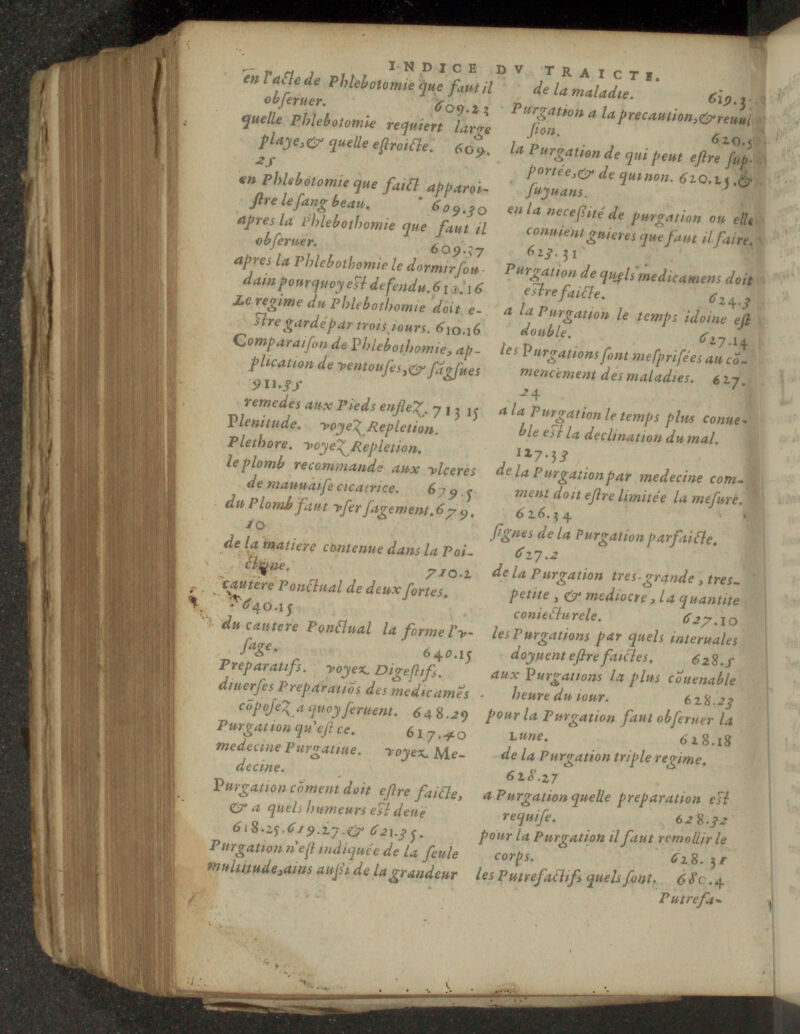 INDICE DV TRAICTE.
en l'acte de Phlebotomie que faut il
obseruer. 609.23
quelle Phlebotomie requiert large
playe,& quelle estroicte. 609.
25
en Phlebotomie que faict apparoi-
stre le sang beau. 609.30
apres la Phlebothomie que faut il
obseruer. 609.37
apres la Phlebothomie le dormir sou-
dain pourquoy est defendu. 612.16
Le regime du Phlebothomie doit e-
stre gardé par trois iours. 610.16
Comparaison de Phlebothomie, ap-
plication de ventouses,& sagsues
911.35
remedes aux Pieds enflez. 713 15
Plenitude. voyez Repletion.
Plethore. voyez Repletion.
le plomb recommande aux vlceres
de mauuaise cicatrice. 679.5
du Plomb faut vser sagement. 679.
10
de la matiere contenue dans la Poi-
ctrine. 710.2
cautere Ponctual de deux sortes.
640.15
du cautere Ponctual la forme l'v-
sage. 640.15
Preparatifs. voyez Digestifs.
diuerses Preparatiõs des medicamẽs
cõposez a quoy seruent. 648.29
Purgation qu'est ce. 617.40
medecine Purgatiue. voyez Me-
decine.
Purgation cõment doit estre faicte,
& a quels humeurs est deuë
618.25.619.27.& 621.35.
Purgation n'est indiquée de la seule
multitude,ains aussi de la grandeur
de la maladie. 619.3
Purgation a la precaution,& reuul
sion. 620.5
la Purgation de qui peut estre sup-
portée,& de qui non. 620.25.&
suyuans.
en la necessité de purgation ou elle
conuient guieres que faut il faire.
623.31
Purgation de quels medicamens doit
estre faicte. 624.3
a la Purgation le temps idoine est
double. 627.14
les Purgations sont mesprisées au cõ-
mencement des maladies. 627.
24
a la Purgation le temps plus conue-
ble est la declination du mal.
127.33
de la Purgation par medecine com-
ment doit estre limitée la mesure.
626.34
signes de la Purgation parfaicte.
627.2
de la Purgation tres-grande, tres-
petite, & mediocre, la quantite
coniecturele. 627.10
les Purgations par quels interuales
doyuent estre faictes. 628.5
aux Purgations la plus cõuenable
heure du iour. 628.23
pour la Purgation faut obseruer la
Lune. 628.18
de la Purgation triple regime.
628.27
a Purgation quelle preparation est
requise. 628.32
pour la Purgation il faut remollir le
corps. 628.31
les Putrefactifs quels sont. 680.4
Putrefa-